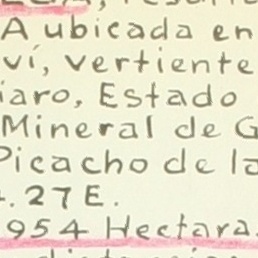 A ubicada en
ví, vertiente
iaro, Estado
Mineral de G
Picacho de la
.27E.
954 Hectara